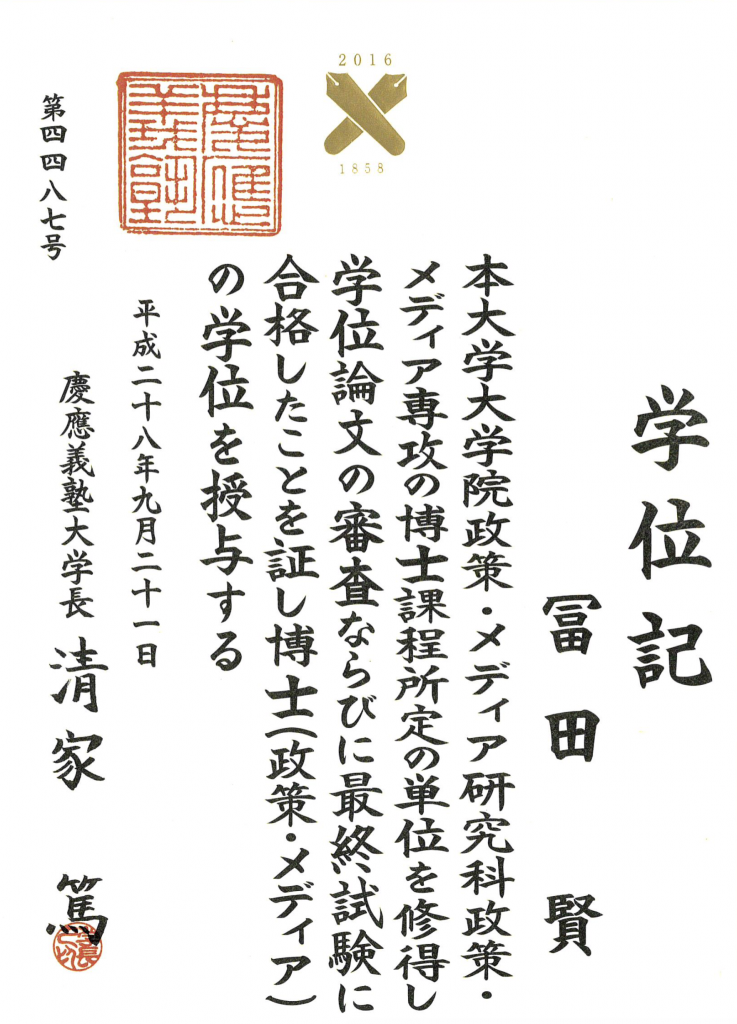 学位記
冨田 賢
本大学大学院政策・メディア研究科政策・
メディア専攻の博士課程所定の単位を修得し
学位論文の審査ならびに最終試験に
合格したことを証し博士(政策・メディア)
の学位を授与する
平成二十八年九月二十一日
慶應義塾大学長 清家 篤
第四四八七号
2016
1858
慶應
義塾